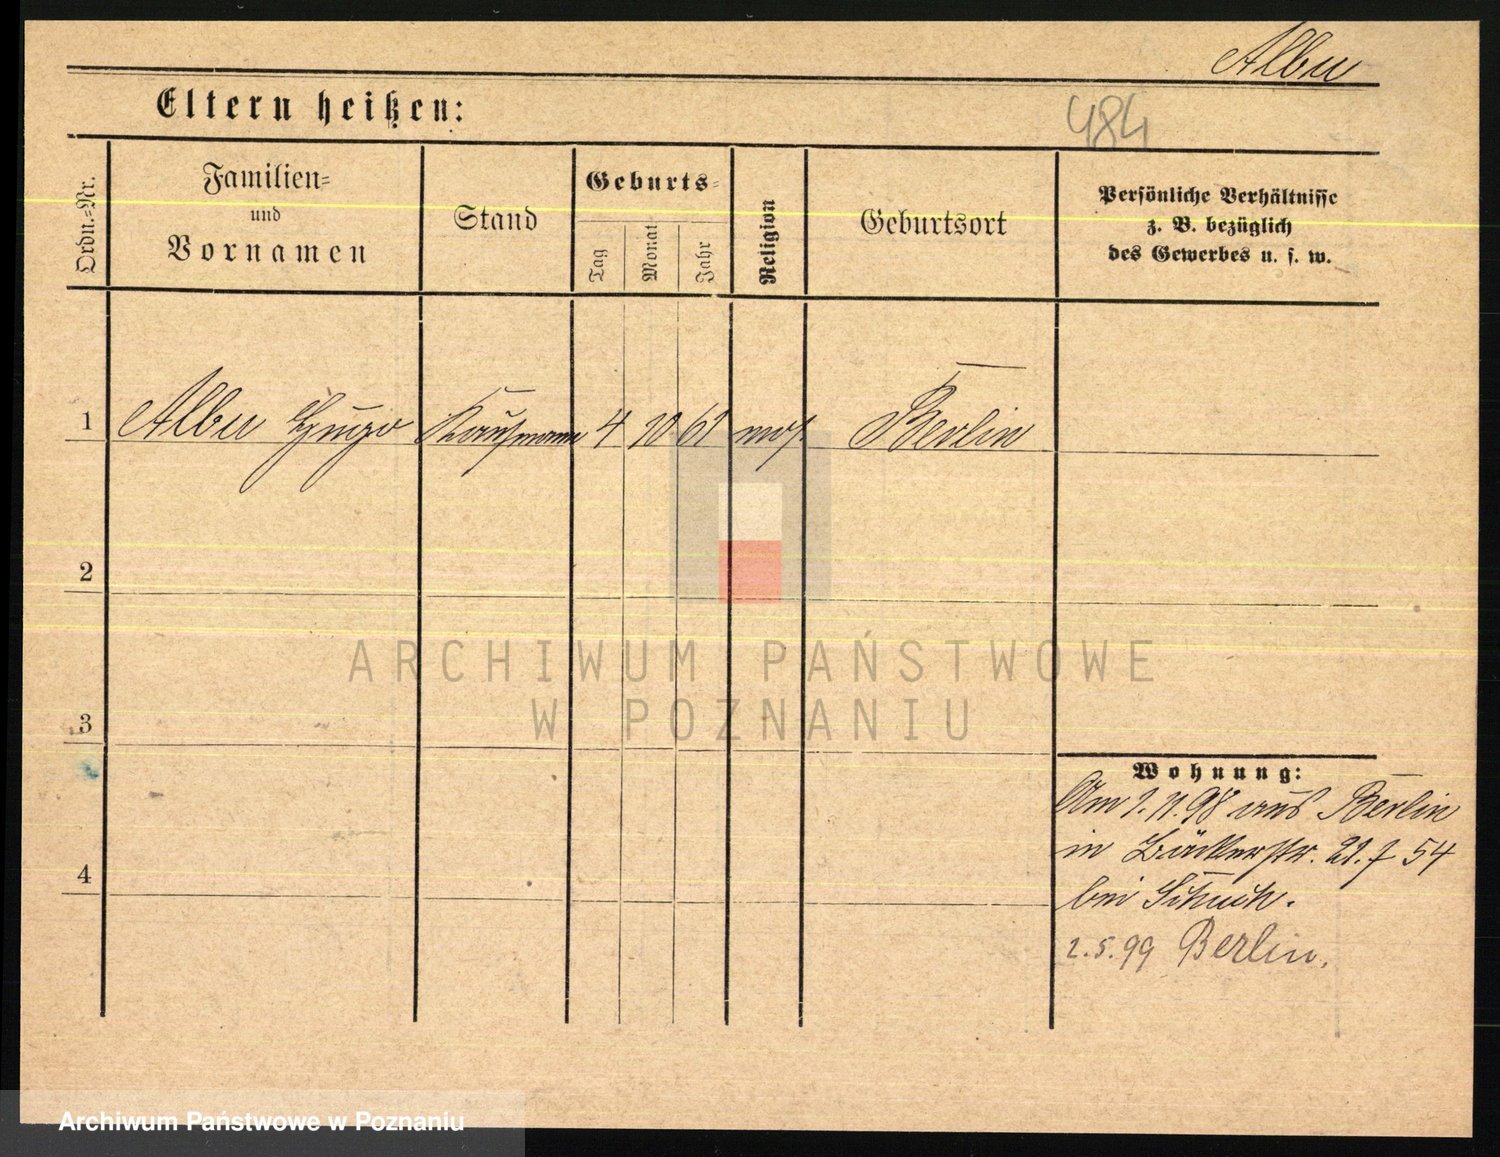 Albu
Eltern heißen:
484
Ordn.=Nr.
Familien=
und
Vornamen
Stand
Geburts=
Tag
Monat
Jahr
Religion
Geburtsort
Persönliche Verhältnisse
z. B. bezüglich
des Gewerbes u. s. w.
1 Albu Hugo Kaufmann 4 10 61 mos. Berlin
2
3
4
ARCHIWUM PAŃSTWOWE
W POZNANIU
Wohnung:
Am 1.11.98 aus Berlin
in Bäckerstr. 21. 7 54
bei Schuch.
2.5.99 Berlin.
Archiwum Państwowe w Poznaniu